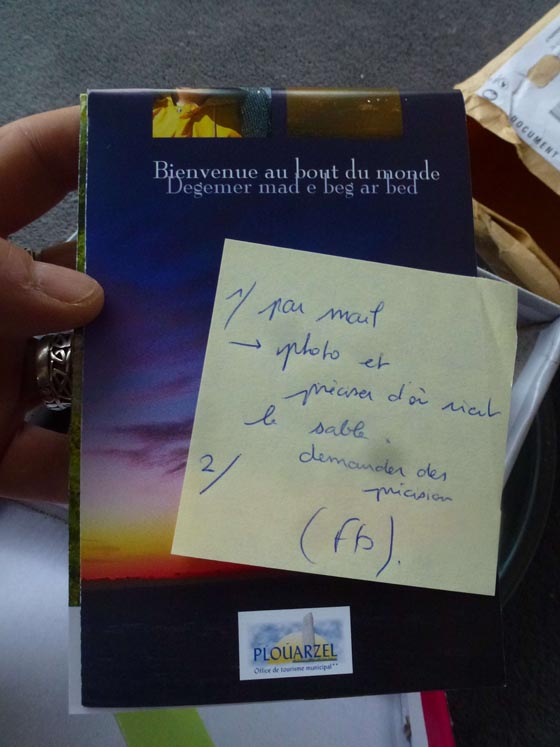 DOCUMENT
Bienvenue au bout du monde
Degemer mad e beg ar bed
1/ par mail
→ photo et
préciser d'où vient
le sable.
2/ demander des
précision
(Fb).
PLOÜARZEL
Office de tourisme municipal**